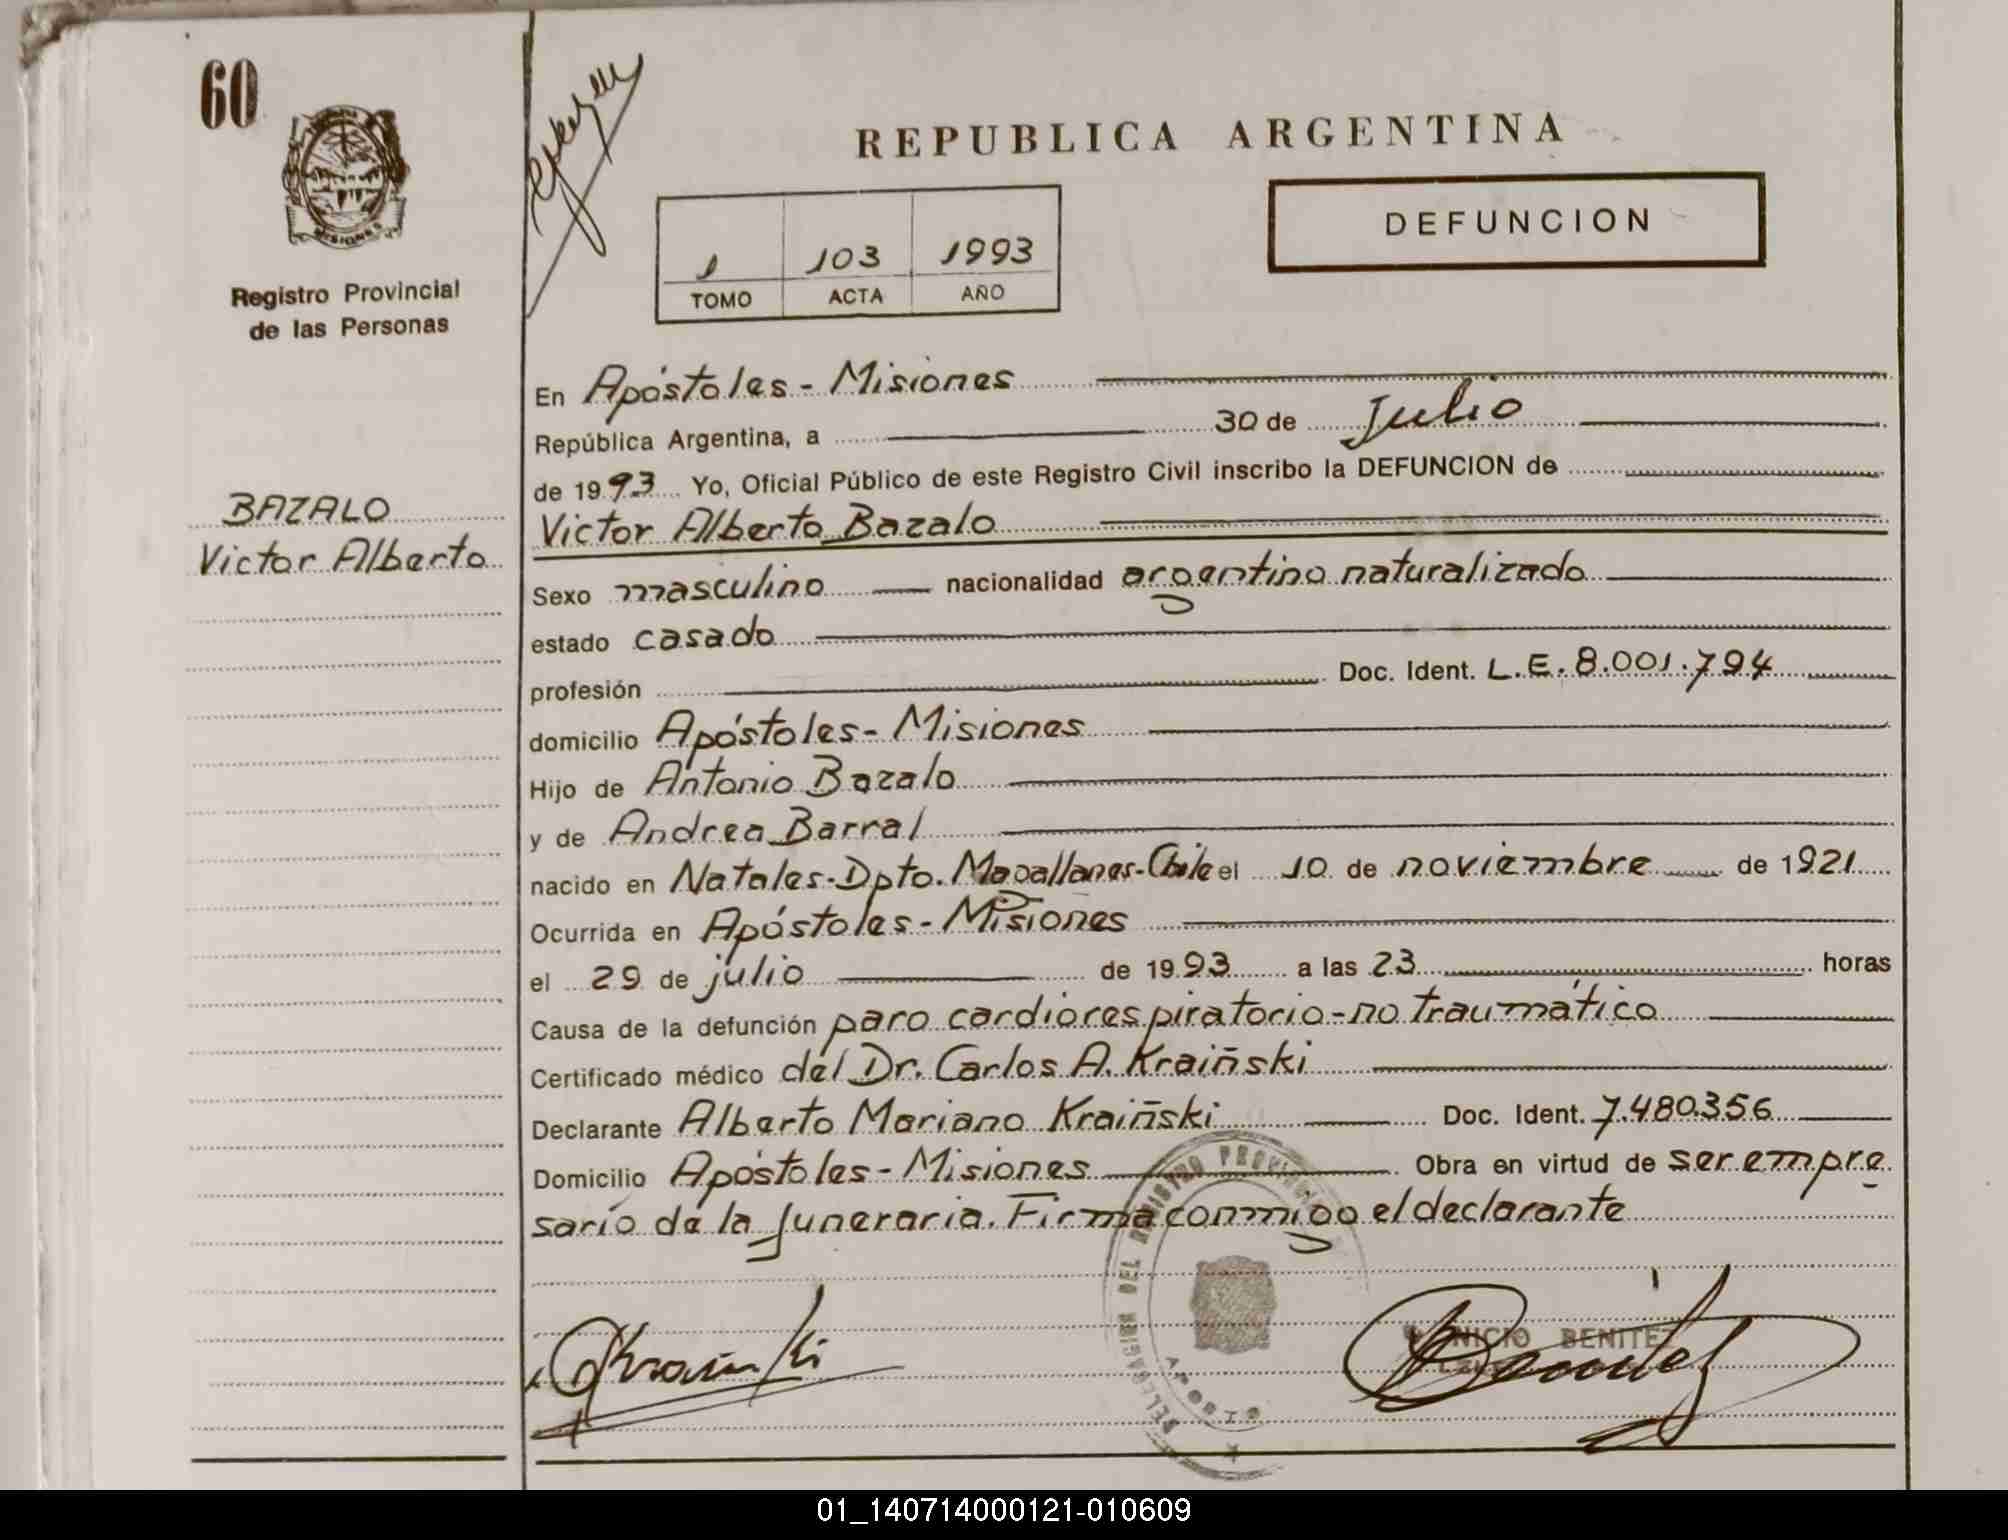 60
MISIONES
Registro Provincial
de las Personas
BAZALO
Victor Alberto
REPUBLICA ARGENTINA
DEFUNCION
1 103 1993
TOMO ACTA AÑO
En Apóstoles - Misiones
República Argentina, a 30 de Julio
de 1993 Yo, Oficial Público de este Registro Civil inscribo la DEFUNCION de
Victor Alberto Bazalo
Sexo masculino nacionalidad argentino naturalizado
estado casado
profesión Doc. Ident. L.E. 8.001.794
domicilio Apóstoles - Misiones
Hijo de Antonio Bazalo
y de Andrea Barral
nacido en Natales - Dpto. Magallanes - Chile el 10 de noviembre de 1921
Ocurrida en Apóstoles - Misiones
el 29 de julio de 1993 a las 23 horas
Causa de la defunción paro cardiorespiratorio - no traumático
Certificado médico del Dr. Carlos A. Kraiñski
Declarante Alberto Mariano Kraiñski Doc. Ident. 7.480.356
Domicilio Apóstoles - Misiones Obra en virtud de ser empre
sario de la funeraria. Firma conmigo el declarante
DEL REGISTRO
BENITEZ
01_140714000121-010609